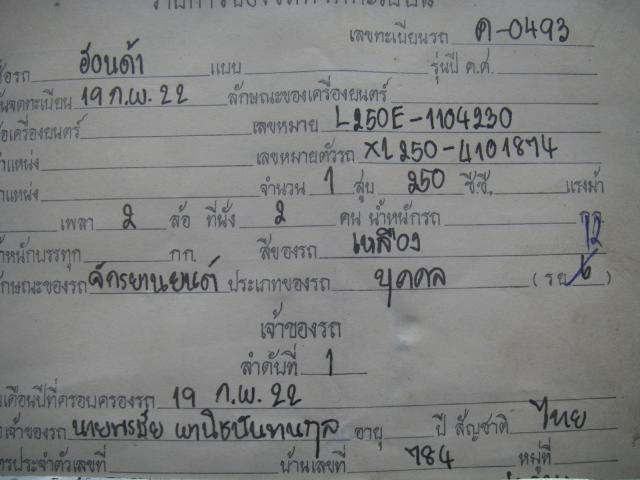 รายการของจดทะเบียน
เลขทะเบียนรถ ค-0493
อรถ ฮอนด้า แบบ รุ่นปี ค.ศ.
นจดทะเบียน 19 ก.พ. 22 ลักษณะของเครื่องยนตร์
อเครื่องยนตร์ เลขหมาย L250E-1104230
ำแหน่ง เลขหมายตัวรถ XL250-4101874
ำแหน่ง จำนวน 1 สูบ 250 ซี.ซี. แรงม้า
เพลา 2 ล้อ ที่นั่ง 2 คน น้ำหนักรถ กก.
ำหนักบรรทุก กก. สีของรถ เหลือง 12
กษณะของรถ จักรยานยนต์ ประเภทของรถ บุคคล (รย 6)
เจ้าของรถ
ลำดับที่ 1
นเดือนปีที่ครอบครองรถ 19 ก.พ. 22
อเจ้าของรถ นายพรชัย พานิชนันทนกุล อายุ ปี สัญชาติ ไทย
ตรประจำตัวเลขที่ บ้านเลขที่ 784 หมู่ที่